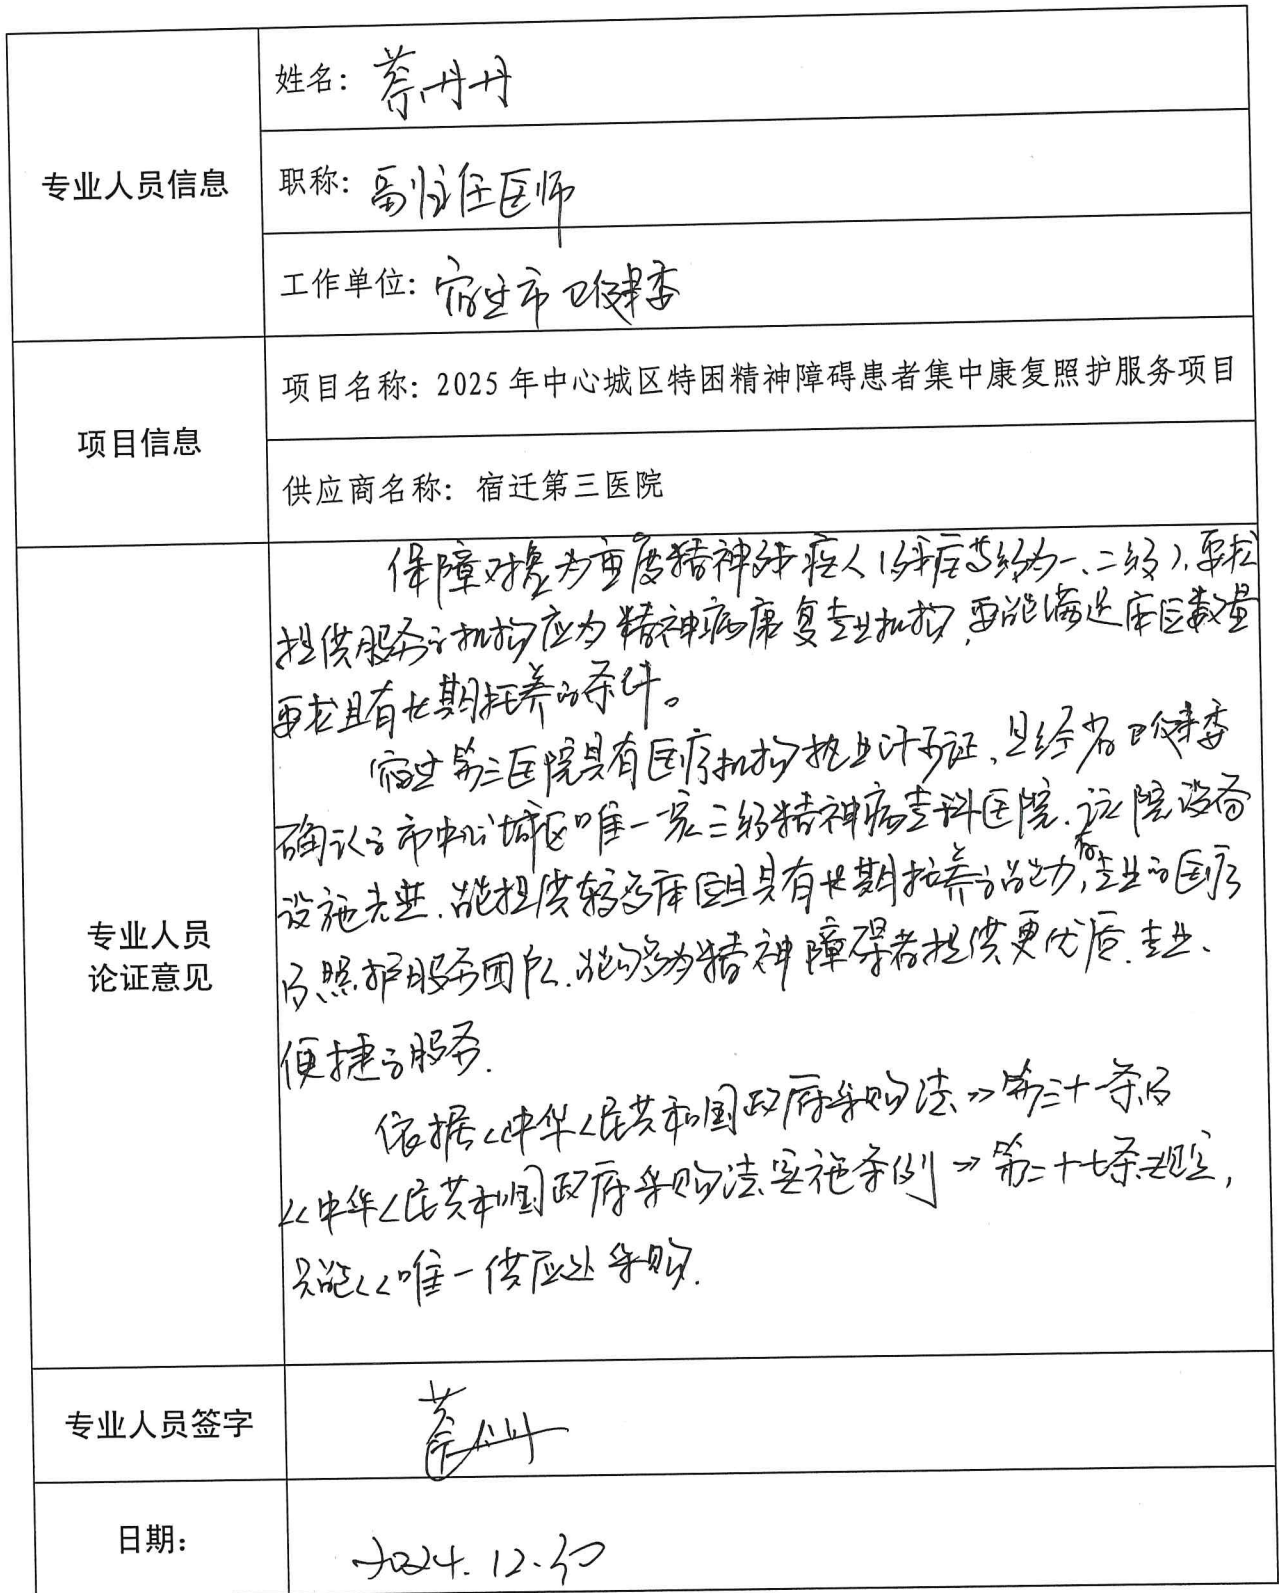 专业人员信息
姓名：蔡丹丹
职称：副主任医师
工作单位：宿迁市卫健委
项目信息
项目名称：2025年中心城区特困精神障碍患者集中康复照护服务项目
供应商名称：宿迁第三医院
专业人员
论证意见
保障对象为重度精神残疾人（残疾等级为一、二级），要求
提供服务的机构应为精神病康复专业机构，要能满足床位数量
要求且有长期托养的条件。
宿迁第三医院具有医疗机构执业许可证，且经省卫健委
确认的市中心城区唯一一家三级精神病专科医院.该院设备
设施先进.能提供较多床位且具有长期托养的能力，有专业的医疗
及照护服务团队.能够为精神障碍者提供更优质.专业、
便捷的服务.
依据《中华人民共和国政府采购法》第三十一条及
《中华人民共和国政府采购法实施条例》第二十七条规定，
只能从唯一供应处采购.
专业人员签字
蔡丹丹
日期：
2024.12.30